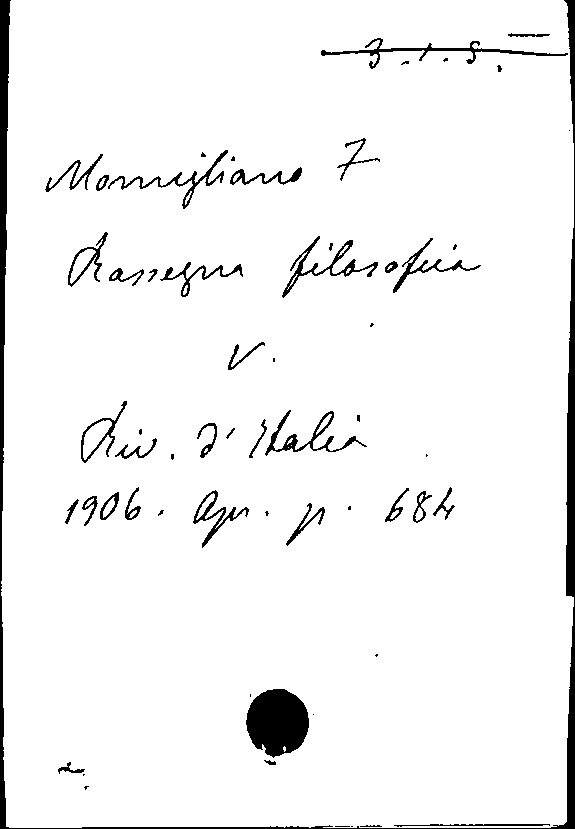 3.1.5.
Momigliano F
Rassegna filosofica
V.
Riv. d'Italia
1906. Apr. p. 684